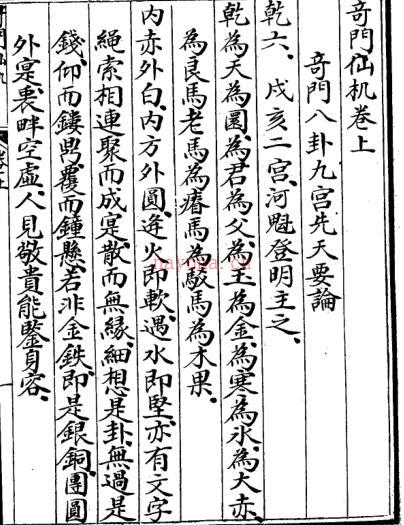 奇門仙机卷上
奇門八卦九宮先天要論
乾六、戌亥二宮、河魁登明主之、
乾為天、為圜、為君、為父、為玉、為金、為寒、為氷、為大赤、
為良馬、老馬、為瘠馬、為駁馬、為木果。
内赤外白、内方外圓、逢火即軟、遇水即堅、亦有文字
繩索相連聚而成寔、散而無緣、細想是卦、無過是
錢、仰而鏤昺、覆而鐘懸、若非金鉄、即是銀銅、團圓
外寔、裏畔空虛、人見敬貴、能鑒身容。
nayona.cn